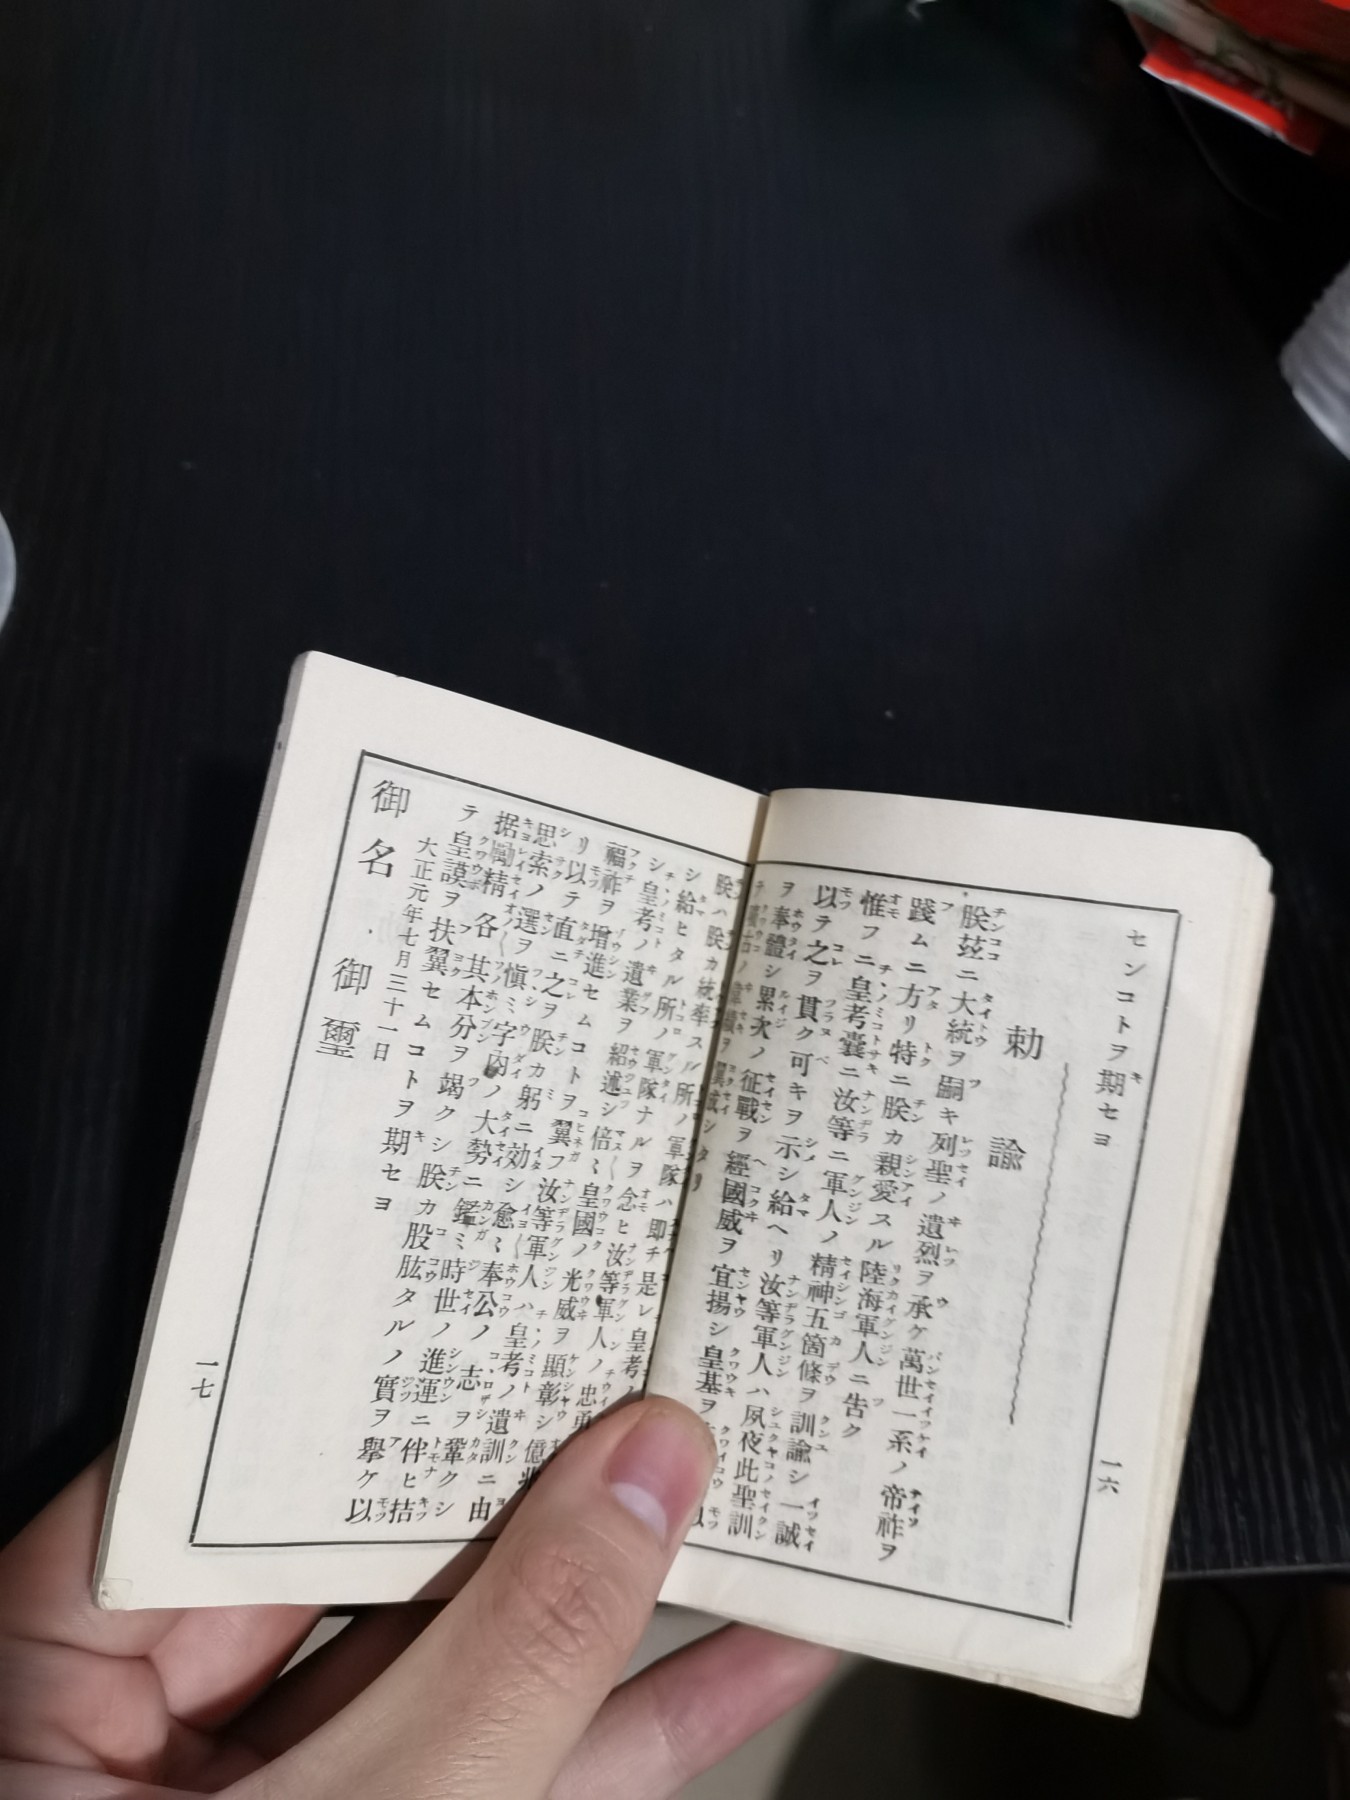 センコトヲ期セヨ
勅諭
朕玆ニ大統ヲ嗣キ列聖ノ遺烈ヲ承ケ萬世一系ノ帝祚ヲ
踐ムニ方リ特ニ朕カ親愛スル陸海軍人ニ告ク
惟フニ皇考曩ニ汝等ニ軍人ノ精神五箇條ヲ訓諭シ一誠
以テ之ヲ貫ク可キヲ示シ給ヘリ汝等軍人ハ夙夜此聖訓
ヲ奉體シ累次ノ征戰ヲ經國威ヲ宣揚シ皇基ヲ
翼成シタリ
朕ハ朕カ統率スル所ノ軍隊ハ即チ是レ皇考ノ
シ給ヒタル所ノ軍隊ナルヲ念ヒ汝等軍人ノ忠勇
シ皇考ノ遺業ヲ紹述シ倍〻皇國ノ光威ヲ顯彰シ億兆
福祚ヲ增進セムコトヲ翼フ汝等軍人ハ皇考ノ遺訓ニ由
リ以テ直ニ之ヲ朕カ躬ニ効シ愈〻奉公ノ志ヲ鞏クシ
思索ノ選ヲ愼ミ宇內ノ大勢ニ鑑ミ時世ノ進運ニ伴ヒ拮
据勵精各其本分ヲ竭クシ朕カ股肱タルノ實ヲ擧ケ以
テ皇謨ヲ扶翼セムコトヲ期セヨ
大正元年七月三十一日
御名 御璽
一六
一七